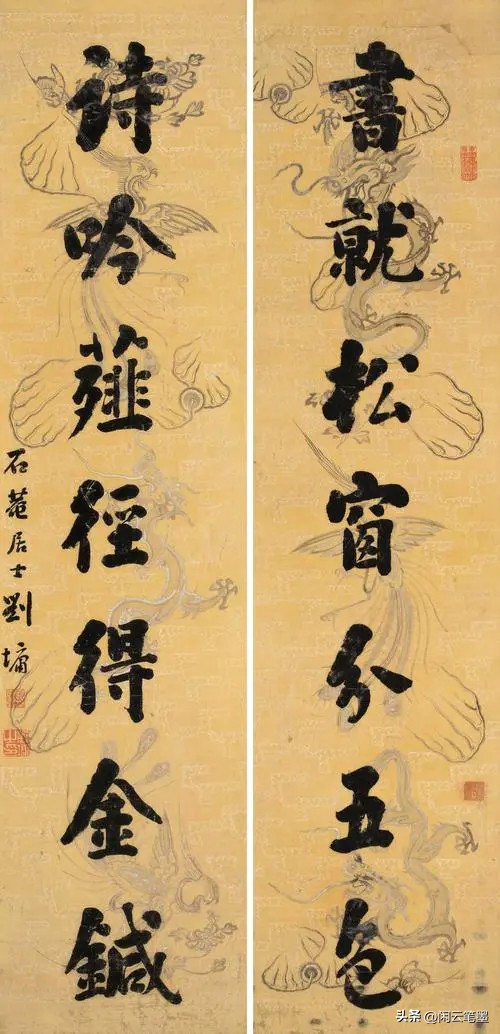 書就松窗分五色
詩吟薤徑得金鍼
石菴居士劉墉
头条 @闲云笔墨